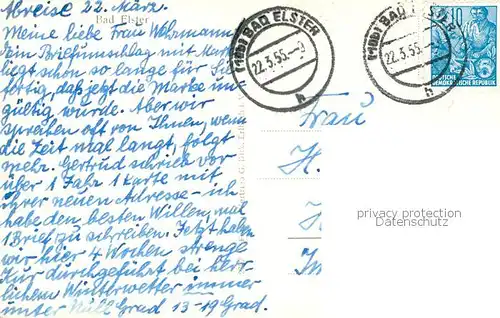 Abreise 22. März.
Bad Elster
Meine liebe Frau Wehrmann!
Ein Briefumschlag mit Marke
liegt schon so lange für Sie
fertig, daß jetzt die Marke un-
gültig wurde. Aber wir
sprechen oft von Ihnen, wenn
die Zeit mal langt, folgt
mehr. Gertrud schrieb vor
über 1 Jahr 1 Karte mit
ihrer neuen Adresse - ich
habe den besten Willen, mal
1 Brief zu schreiben. Jetzt haben
wir hier 4 Wochen strenge
Kur durchgeführt bei herr-
lichem Winterwetter immer
unter Null Grad 13-19 Grad.
(10b) BAD ELSTER
22.3.55.-9
h
(10b) BAD
22.3.55.
h
10
DEUTSCHE
DEMOKRATISCHE REPUBLIK
Frau
H.
privacy protection
Datenschutz